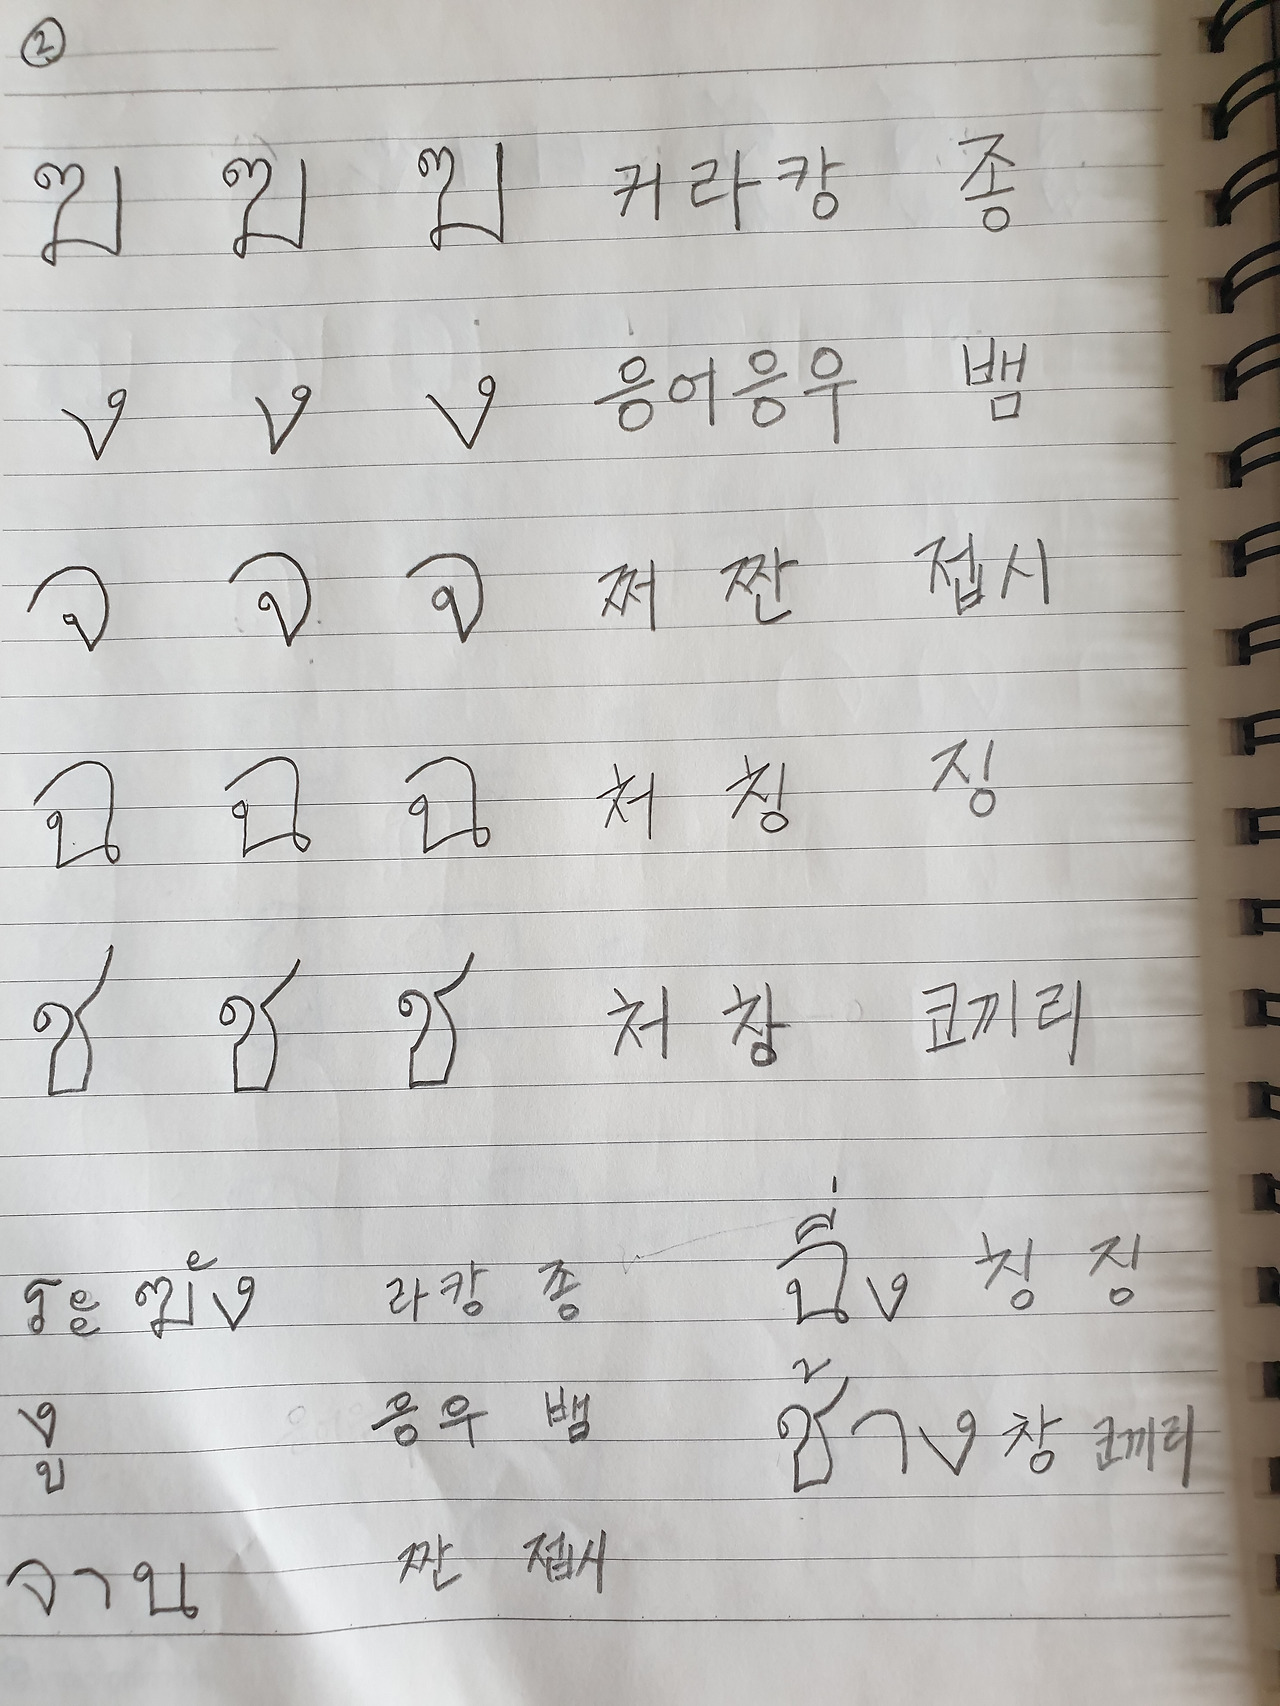 ②
ฆ ฆ ฆ 커라캉 종
ง ง ง 응어응우 뱀
จ จ จ 쩌 짠 접시
ฉ ฉ ฉ 처 칭 징
ช ช ช 처 창 코끼리
ระฆัง 라캉 종 ฉิ่ง 칭 징
งู 응우 뱀 ช้าง 창 코끼리
จาน 짠 접시